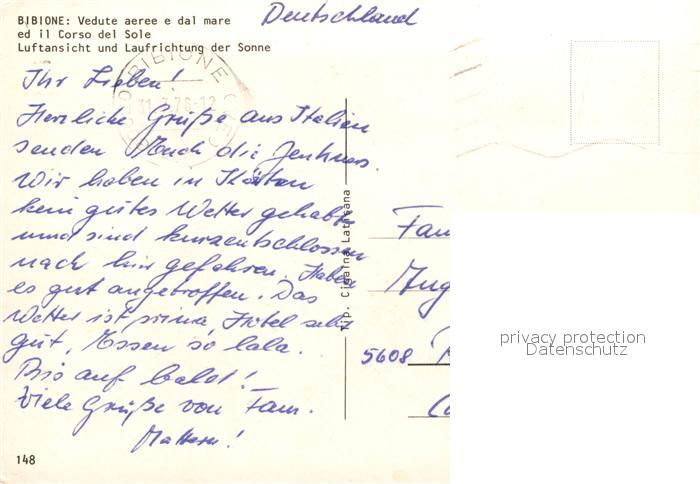 BIBIONE: Vedute aeree e dal mare
ed il Corso del Sole
Luftansicht und Laufrichtung der Sonne
Deutschland
BIBIONE
Ihr Lieben!
Herzliche Grüße aus Italien
senden Euch die
Wir haben in Kärnten
kein gutes Wetter gehabt
und sind kurzentschlossen
nach hier gefahren. Haben
es gut angetroffen. Das
Wetter ist prima, Hotel sehr
gut, Essen so lala.
Bis auf bald!
Viele Grüße von Fam.
Tip. Cigaina Latisana
Fam
Aug
5608
privacy protection
Datenschutz
148